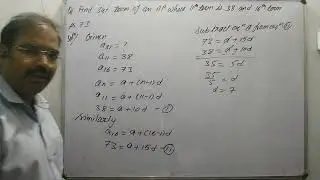 Q Find 31st term of an AP whose 11th term is 38 and 16th term
is 73
Solⁿ Given
a₃₁ = ?
a₁₁ = 38
a₁₆ = 73
aₙ = a + (n-1)d
a₁₁ = a + (11-1)d
38 = a + 10d — (I)
Similarly
a₁₆ = a + (16-1)d
73 = a + 15d — (II)
Subtract eqⁿ (I) from eqⁿ (II)
73 = a + 15d
38 = a + 10d
35 = 5d
35/5 = d
d = 7